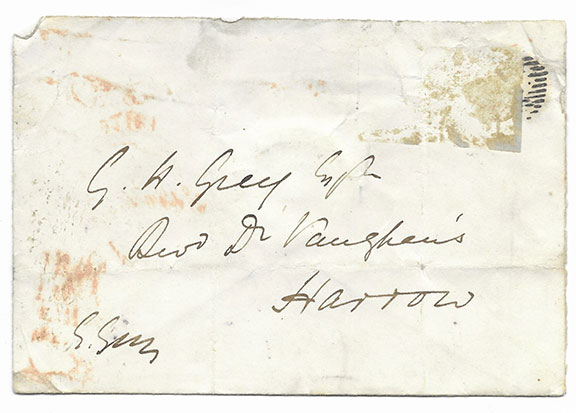 G. H. Grey Esqr
Revd Dr Vaughan's
Harrow
G. Grey